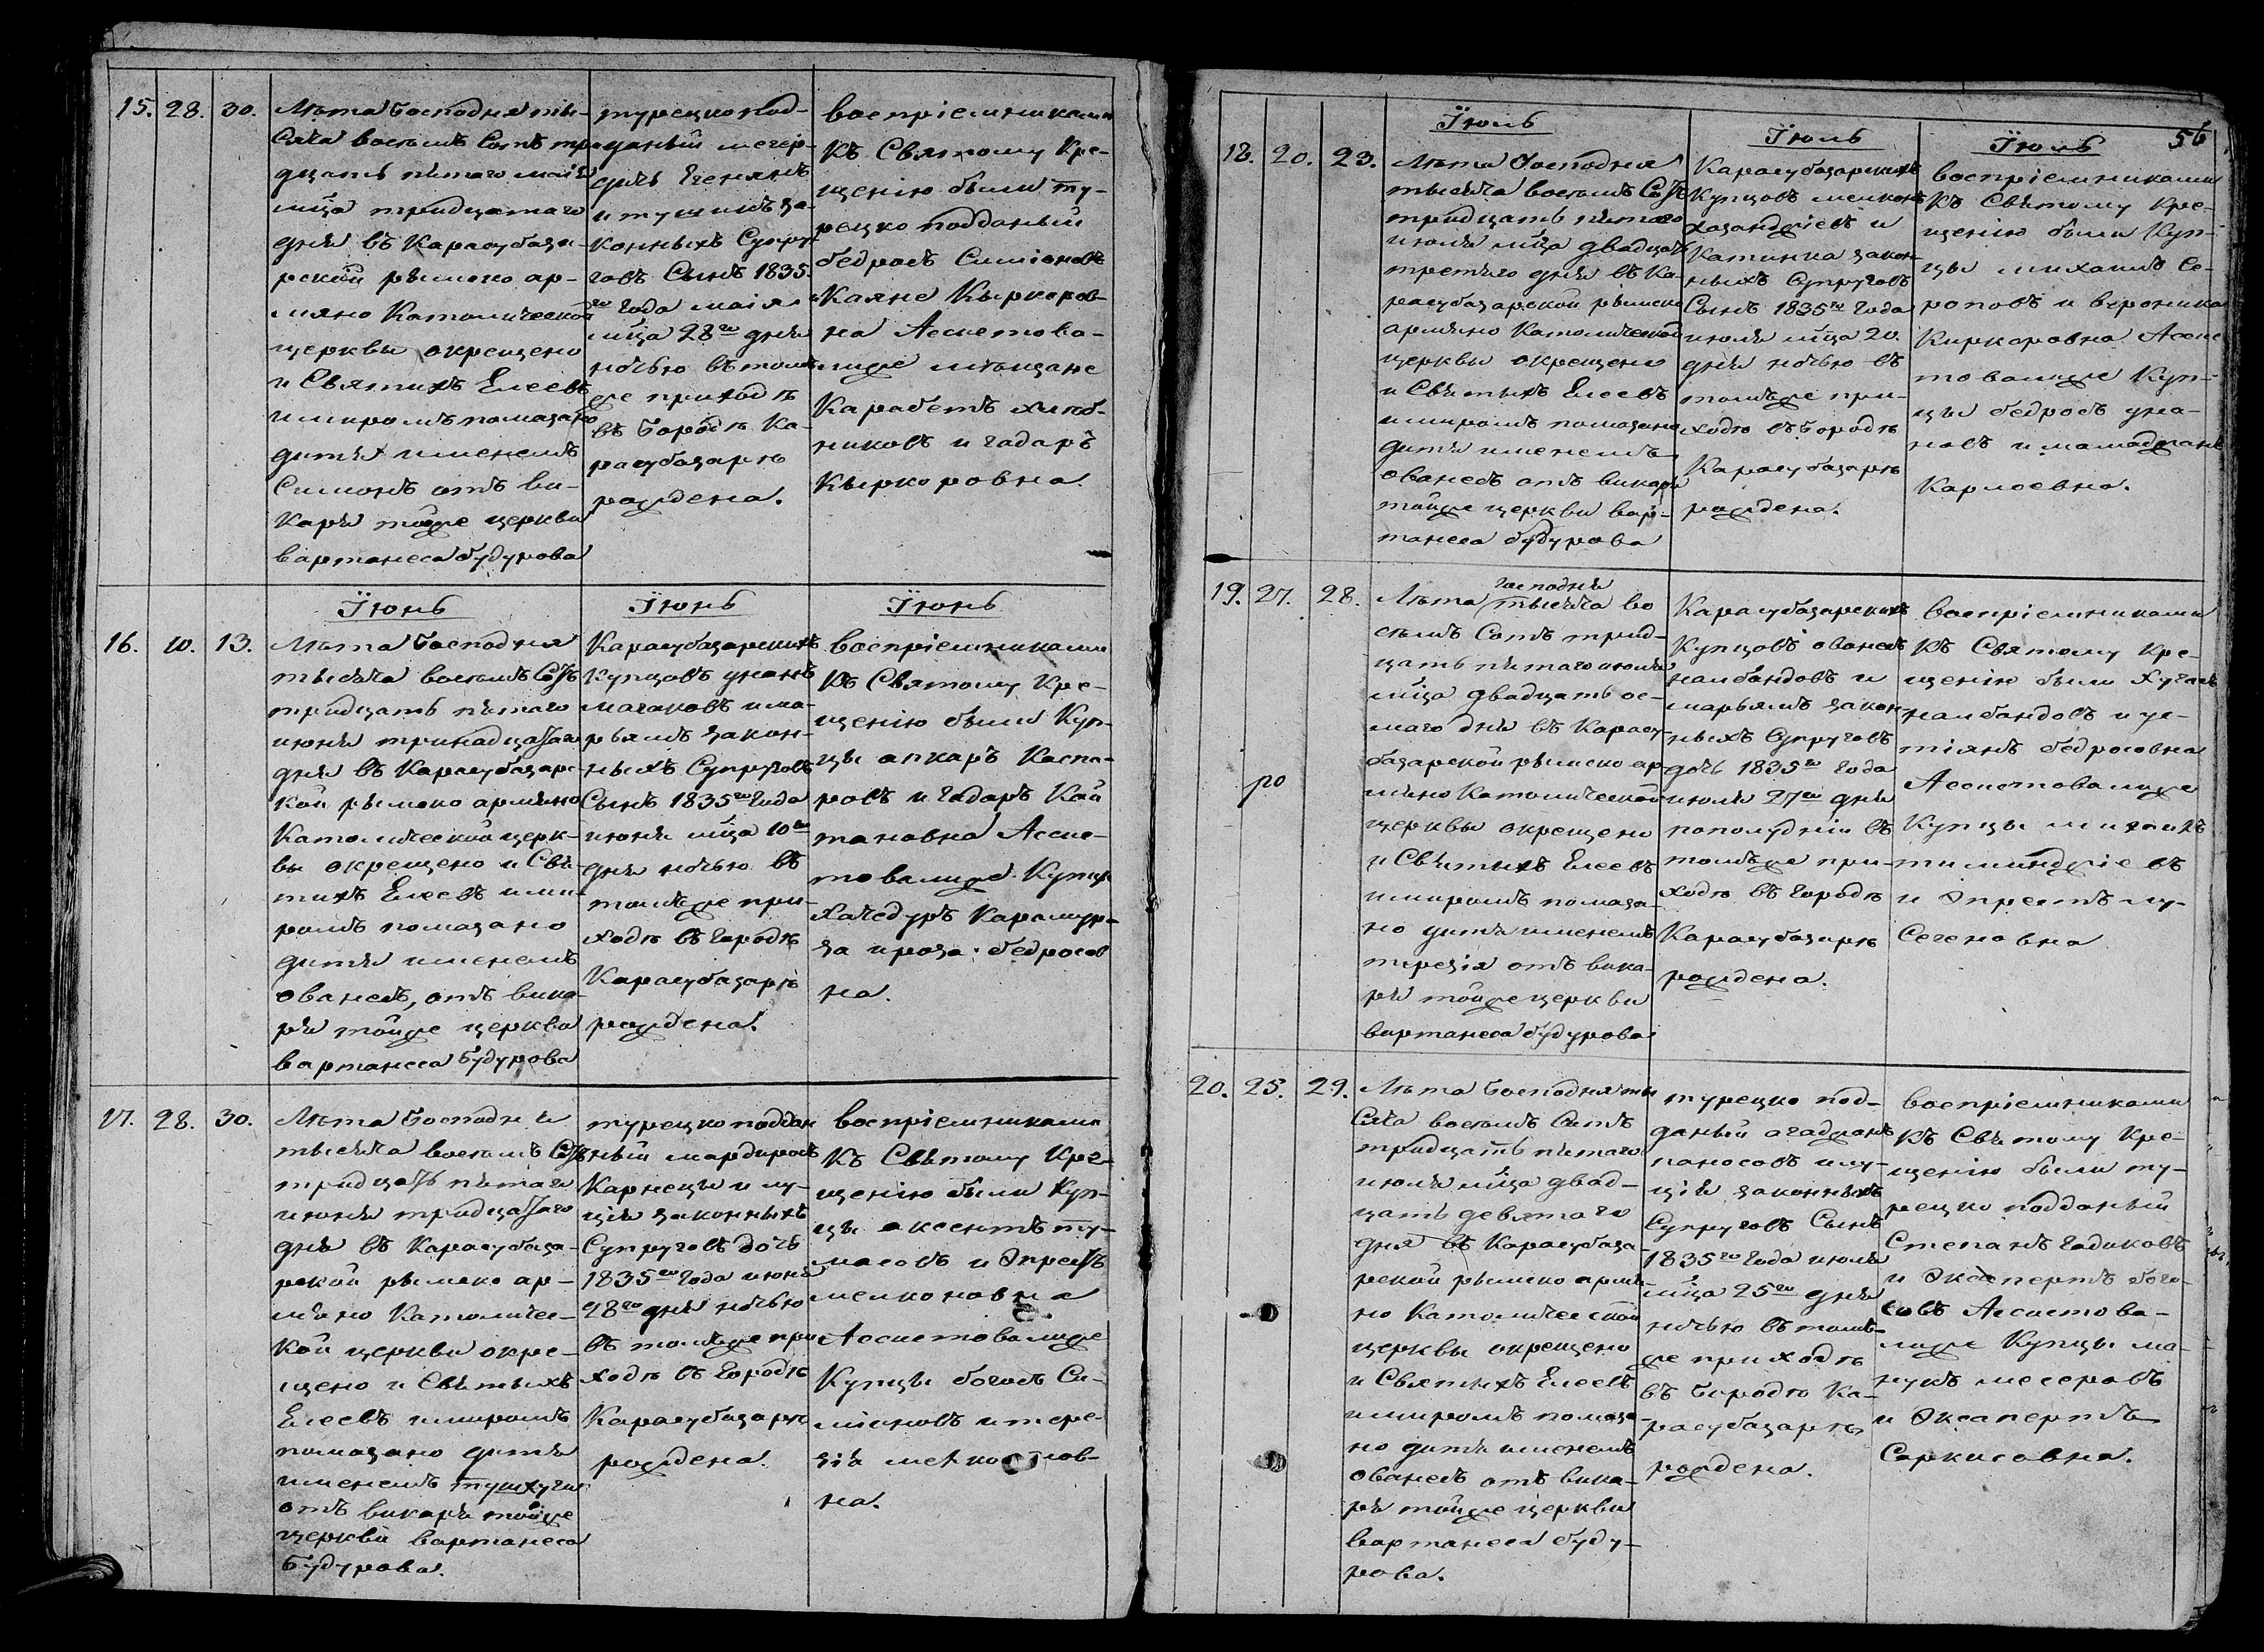 15. 28. 30.
Лѣта Господня ты-
сяча восемь Сотъ три
дцать пятаго маія
мⷭца тридцатаго
дня въ Карасубаза-
рской римско ар-
мяно Католической
церквы окрещено
и Святихъ Елеевъ
и миромъ помазано
дитя именемъ
Симонъ отъ ви-
каря тойже церкви
вартанеса будурова
турецко под-
даный
Егенянъ
и тушикъ за-
конныхъ Супру-
говъ Сынъ 1835.
го года маія
мца 28го дня
ночью въ томъ
же приходѣ
въ Городѣ Ка-
расубазарѣ
рождена.
воспріемниками
Къ Святому Кре-
щенію были ту-
рецко подданый
бедросъ Симіоновъ
Каяне Кыркоров-
на Ассистова-
лиже мѣщане
Карабетъ хлѣб-
никовъ и гадаръ
Кыркоровна.
Іюнь
Іюнь
Іюнь
16. 10. 13.
Лѣта Господня
тысяча восемь Сотъ
тридцать пятаго
июня тринадцатаго
дня въ Карасубазарс-
кой римско армяно
Католической церк-
вы окрещено и Свя-
тихъ Елеевъ и ми-
ромъ помазано
дитя именемъ
ованесъ, отъ вика-
ря тойже церкви
вартанеса будурова
Карасубазарскихъ
Купцовъ унанъ
магаковъ и ма-
рьямъ закон-
ныхъ Супруговъ
Сынъ 1835го года
июня мца 10го
дня ночью въ
томъже при-
ходѣ въ городѣ
Карасубазарѣ
рождена.
воспріемниками
Къ Святому Кре-
щенію были Куп-
цы апкаръ Каспа-
ровъ и гадаръ Кай
тановна Ассис-
товалиже Купцы
хачедуръ Карамур-
за и роза бедросов
на.
17. 28. 30.
Лѣта Господня
тысяча восемь Сотъ
тридцать пятаго
июня тридцатаго
дня въ Карасубаза-
рской римско ар-
мяно Католичес-
кой церкви окре-
щено и Святыхъ
Елеевъ и миромъ
помазано дитя
именемъ
отъ викаря тойже
церкви вартанеса
Будурова.
турецко поддан
ный мардиросъ
Карнеци и лу-
ція законныхъ
Супруговъ дочь
1835го года июня
28го дня ночью
въ томъже при
ходѣ въ городѣ
Карасубазарѣ
рождена.
воспріемниками
Къ Святому Кре-
щенію были Куп-
цы аксентъ ту-
масовъ и Эпресъ
мелконовна
Ассистовалиже
Купцы богосъ Си-
міоновъ и тере-
зія
на.
56
Іюль
Іюль
Іюль
18. 20. 23.
Лѣта Господня
тысяча восемь Сотъ
тридцать пятаго
июля мца двадцать
третяго дня въ Ка-
расубазарской римско
армяно Католической
церквы окрещено
и Святыхъ Елеевъ
и миромъ помазано
дитя именемъ
ованесъ отъ викаря
тойже церкви вар-
танеса будурова
Карасубазарскихъ
Купцовъ мелконъ
хазанджіевъ и
Катинка закон-
ныхъ Супруговъ
Сынъ 1835го года
июля мца 20.
дня ночью въ
томъже при-
ходѣ въ Городѣ
Карасубазарѣ
рождена.
воспріемниками
Къ Святому Кре-
щенію были Куп-
цы михаилъ Се-
роповъ и вероника
Киркоровна Ассис
товалиже Куп-
цы бедросъ уна-
новъ и мамаджанъ
Карлоевна.
19. 27. 28.
ро
господня
Лѣта тысяча во
сѣмь Сотъ трид-
цать пятаго июля
мца двадцать ос-
маго дня въ Карасу-
базарской римско ар
мяно Католической
церквы окрещено
и Святыхъ Елеевъ
и миромъ помаза-
но дитя именемъ
терезія отъ вика-
ря тойже церкви
вартанеса будурова
Карасубазарскихъ
Купцовъ ованесъ
налбандовъ и
марьямъ закон-
ныхъ Супруговъ
дочь 1835го года
июля 27го дня
пополудніи въ
томъже при-
ходѣ въ городѣ
Карасубазарѣ
рождена.
воспріемниками
Къ Святому Кре-
щенію были
налбандовъ и
бедросовна
Ассистовалиже
Купцы
тилинджіевъ
и Эпресъ
Сегеновна
20. 25. 29.
Лѣта Господня ты
сяча восемь Сотъ
тридцать пятаго
июля мца двад-
цать девятаго
дня въ Карасубаза-
рской римско армя-
но Католической
церквы окрещено
и Святыхъ Елеевъ
и миромъ помаза-
но дитя именемъ
ованесъ отъ вика-
ря тойже церкви
вартанеса буду-
рова.
турецко под-
даный агаджанъ
паносовъ и лу-
ція законныхъ
Супруговъ Сынъ
1835го года июля
мца 25го дня
ночью въ томъ-
же приходѣ
въ Городѣ Ка-
расубазарѣ
рождена.
воспріемниками
Къ Святому Кре-
щенію были ту-
рецко подданый
Степанъ гадиковъ
и Эксапертъ бого-
совъ Ассистова-
лиже Купцы ма-
нукъ месеровъ
и Эксапертъ
Саркисовна.